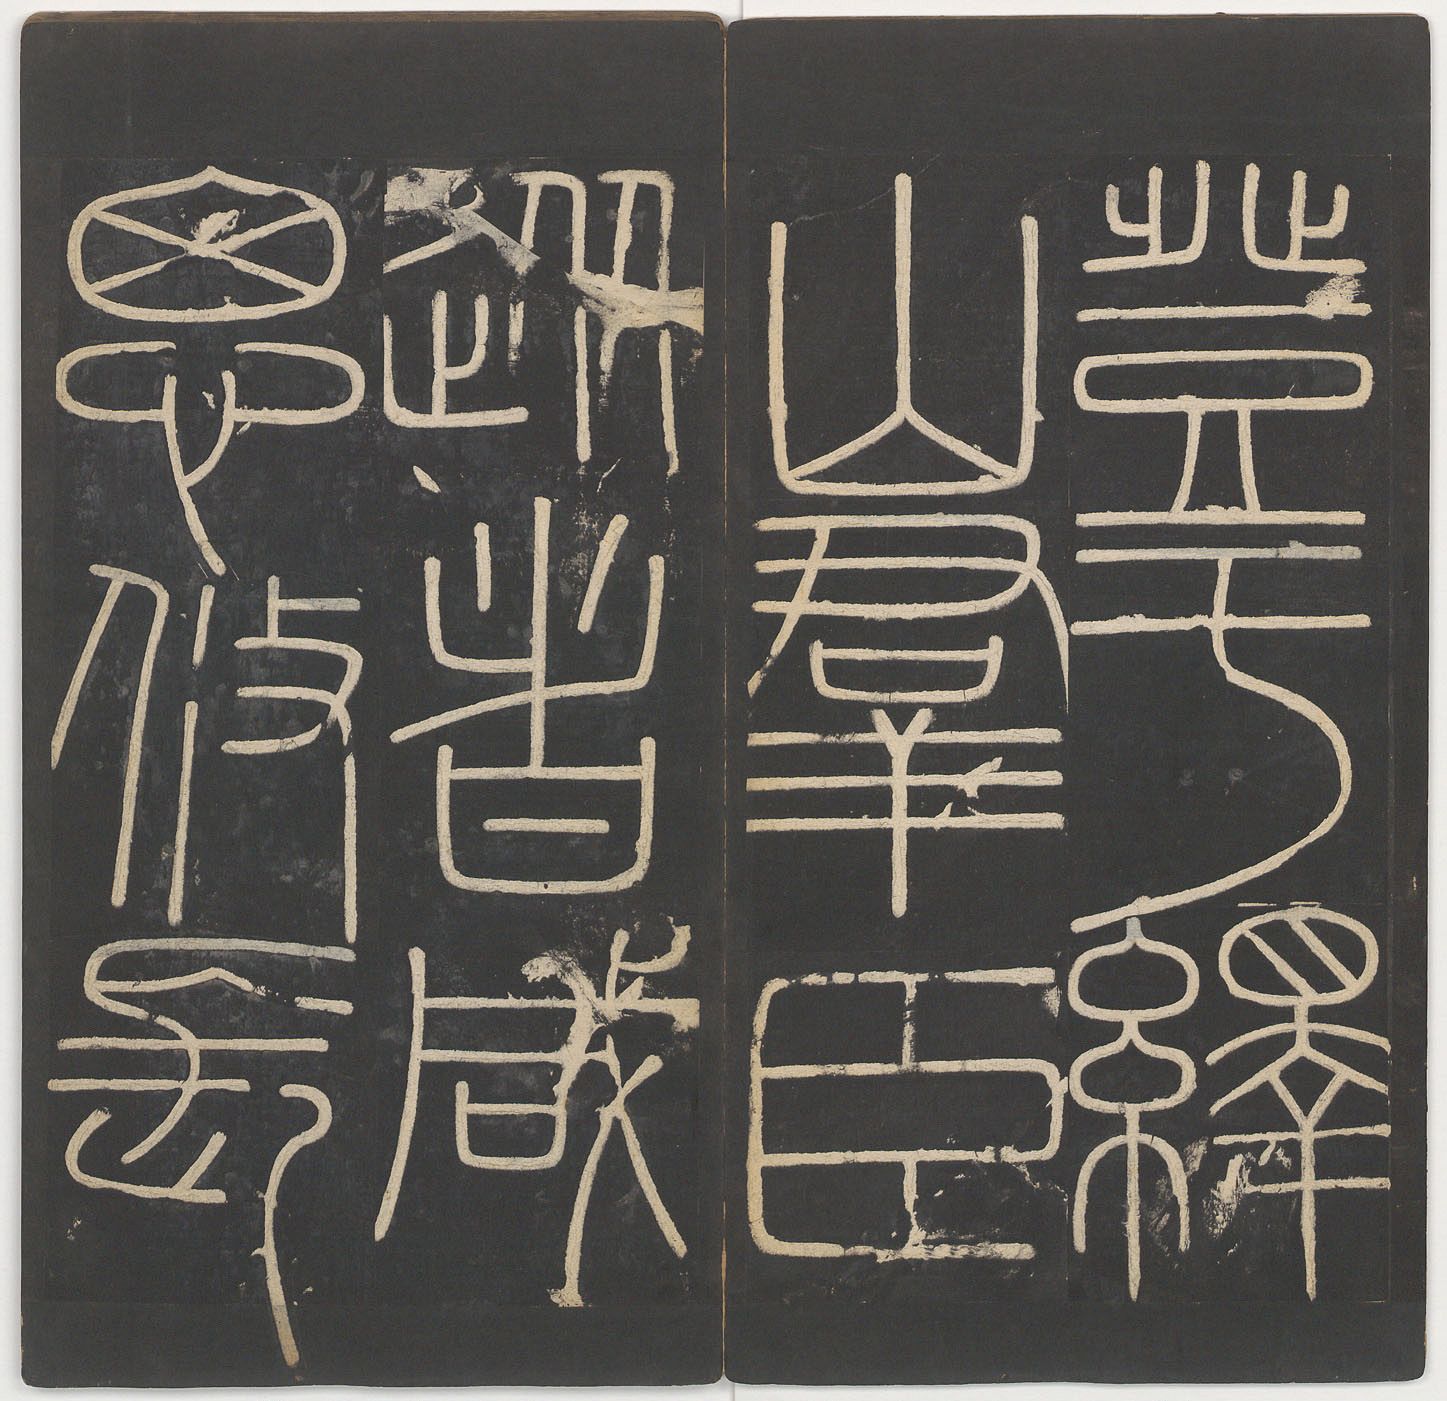 登于繹
山羣臣
從者咸
思攸長